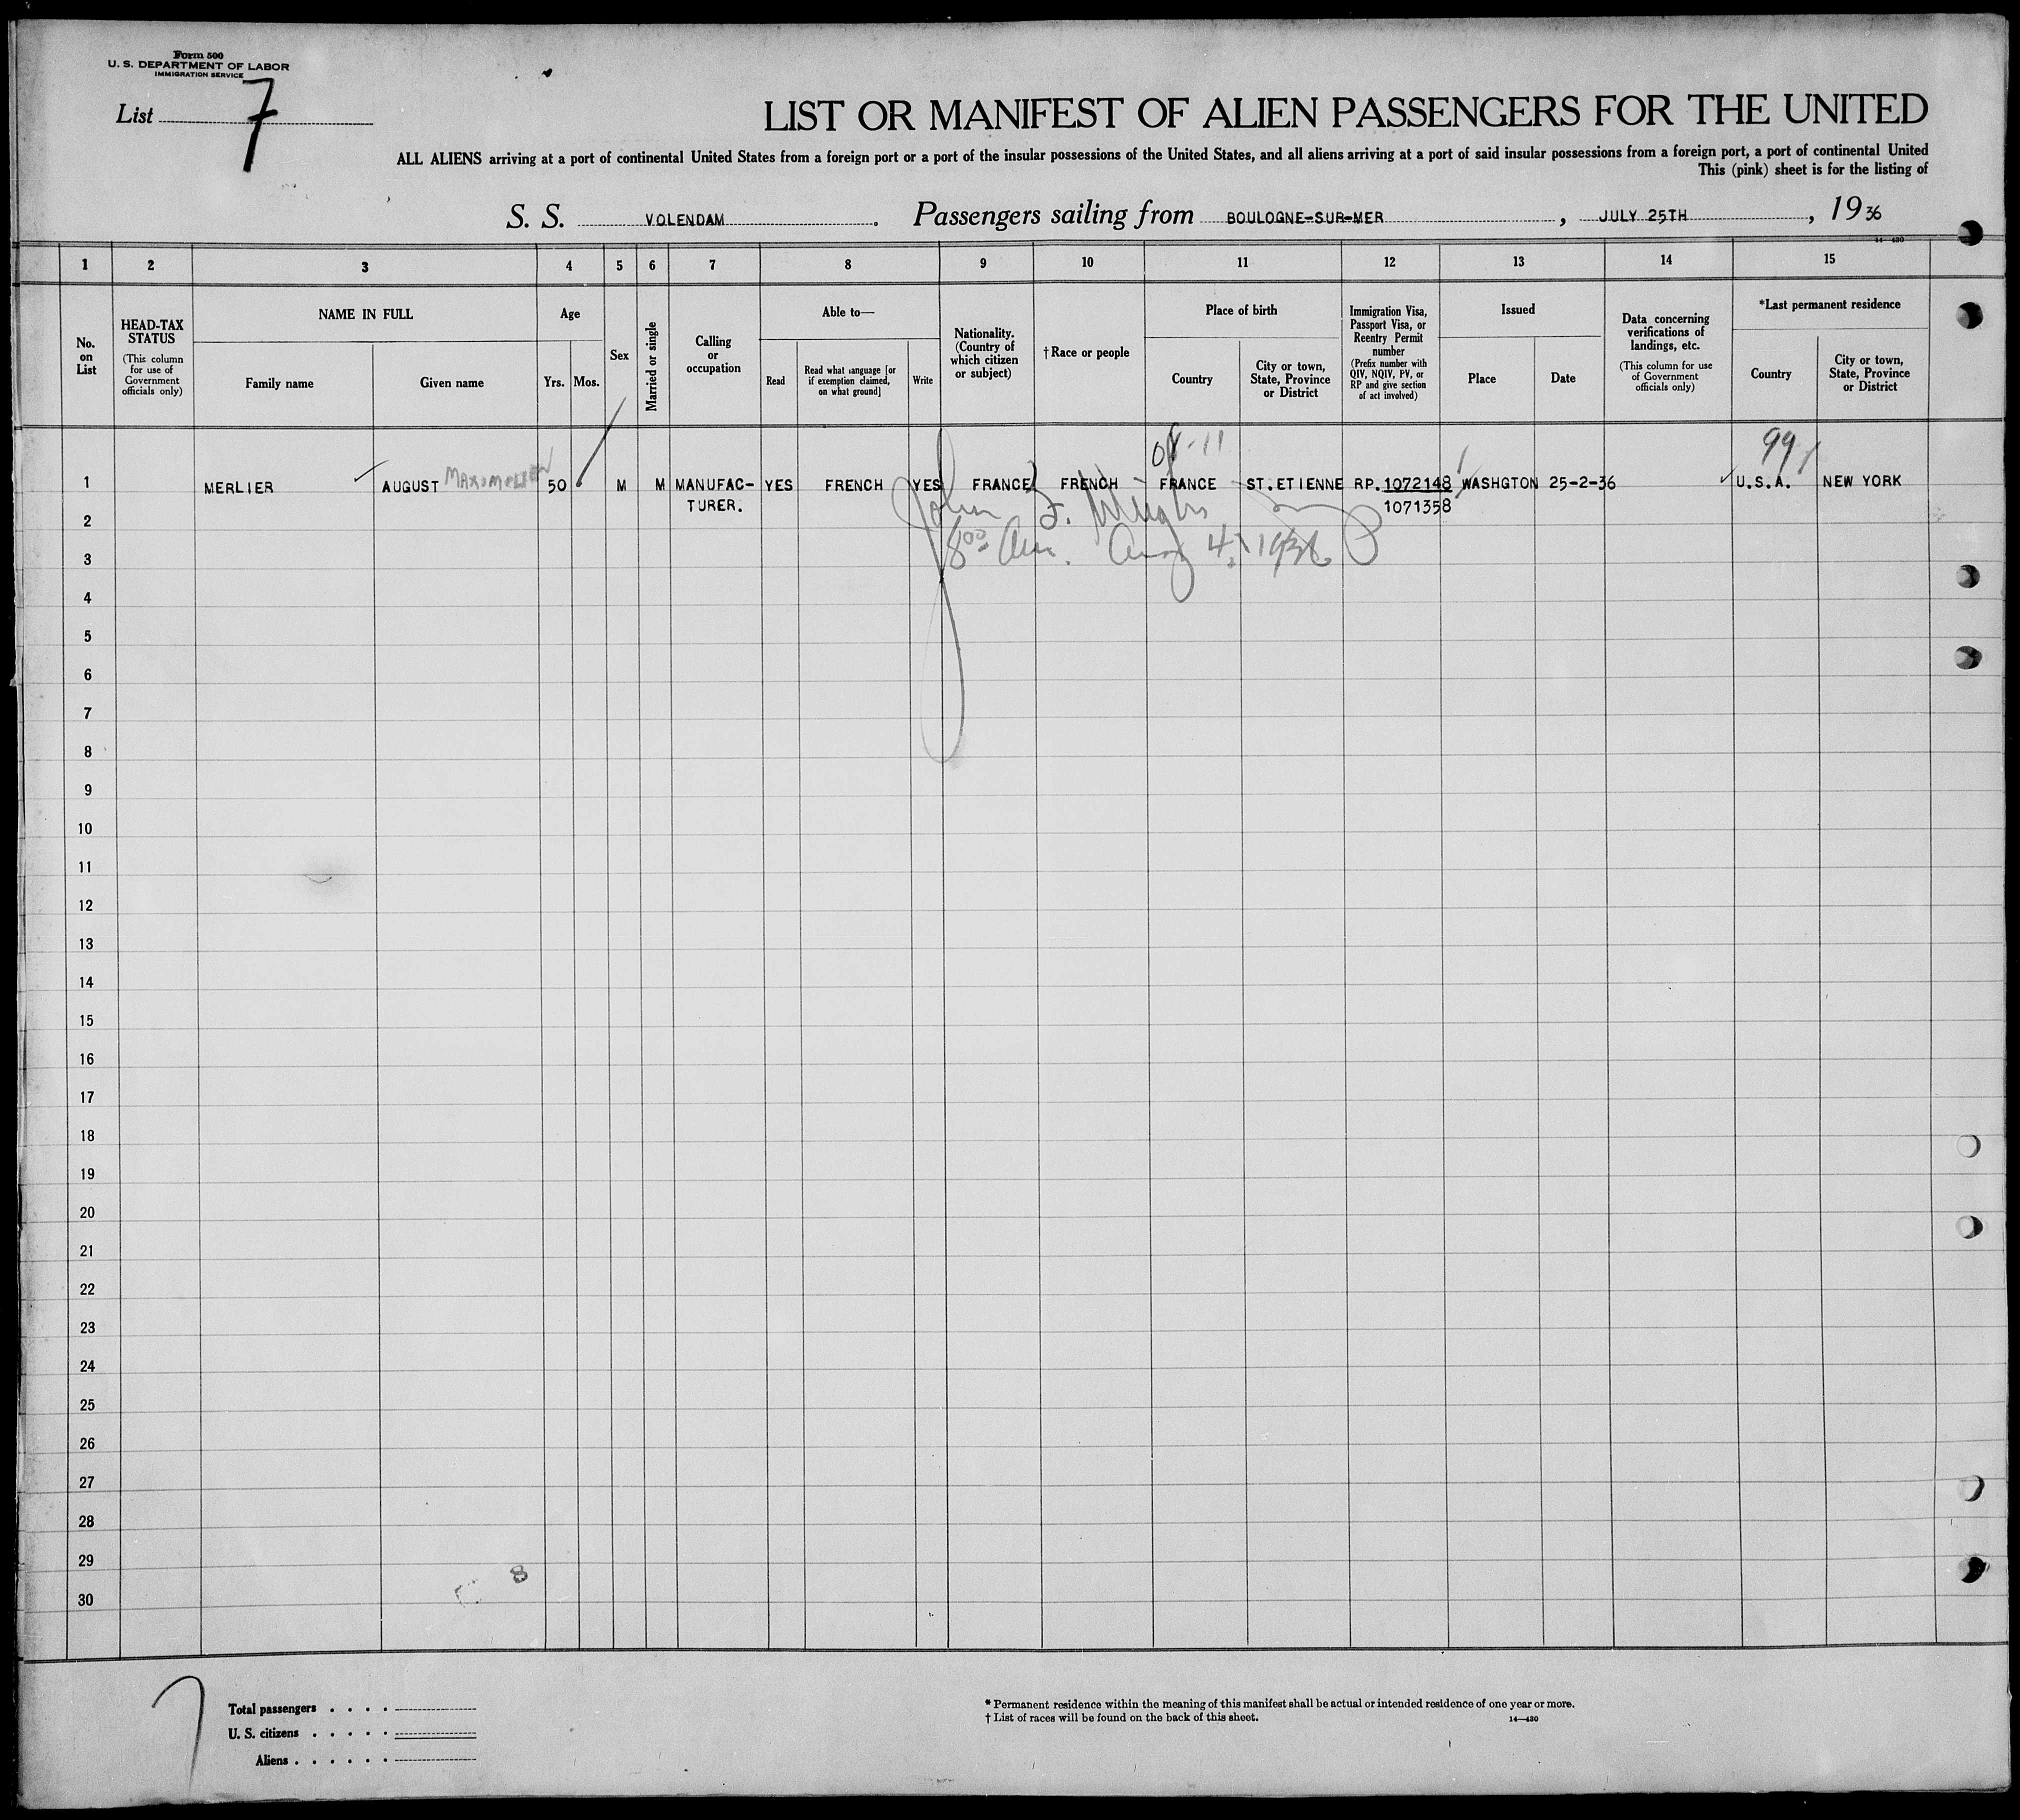 Form 500
U. S. DEPARTMENT OF LABOR
IMMIGRATION SERVICE
List 7
LIST OR MANIFEST OF ALIEN PASSENGERS FOR THE UNITED
ALL ALIENS arriving at a port of continental United States from a foreign port or a port of the insular possessions of the United States, and all aliens arriving at a port of said insular possessions from a foreign port, a port of continental United
This (pink) sheet is for the listing of
S. S. VOLENDAM. Passengers sailing from BOULOGNE-SUR-MER, JULY 25TH, 1936
14—430
1 2 3 4 5 6 7 8 9 10 11 12 13 14 15
No. on List
HEAD-TAX STATUS
(This column for use of Government officials only)
NAME IN FULL
Family name
Given name
Age
Yrs.
Mos.
Sex
Married or single
Calling or occupation
Able to—
Read
Read what language [or if exemption claimed, on what ground]
Write
Nationality. (Country of which citizen or subject)
† Race or people
Place of birth
Country
City or town, State, Province or District
Immigration Visa, Passport Visa, or Reentry Permit number
(Prefix number with QIV, NQIV, PV, or RP and give section of act involved)
Issued
Place
Date
Data concerning verifications of landings, etc.
(This column for use of Government officials only)
*Last permanent residence
Country
City or town, State, Province or District
99
1 MERLIER AUGUST 50 M M MANUFAC- YES FRENCH YES FRANCE FRENCH FRANCE ST.ETIENNE RP. 1072148 WASHGTON 25-2-36 U.S.A. NEW YORK
TURER. 1071358
John F.
2
8 00 Am. Aug 4, 1936
3
4
5
6
7
8
9
10
11
12
13
14
15
16
17
18
19
20
21
22
23
24
25
26
27
28
29
8
30
Total passengers . . . .
U. S. citizens . . . . .
Aliens . . . . . .
* Permanent residence within the meaning of this manifest shall be actual or intended residence of one year or more.
† List of races will be found on the back of this sheet.
14—430